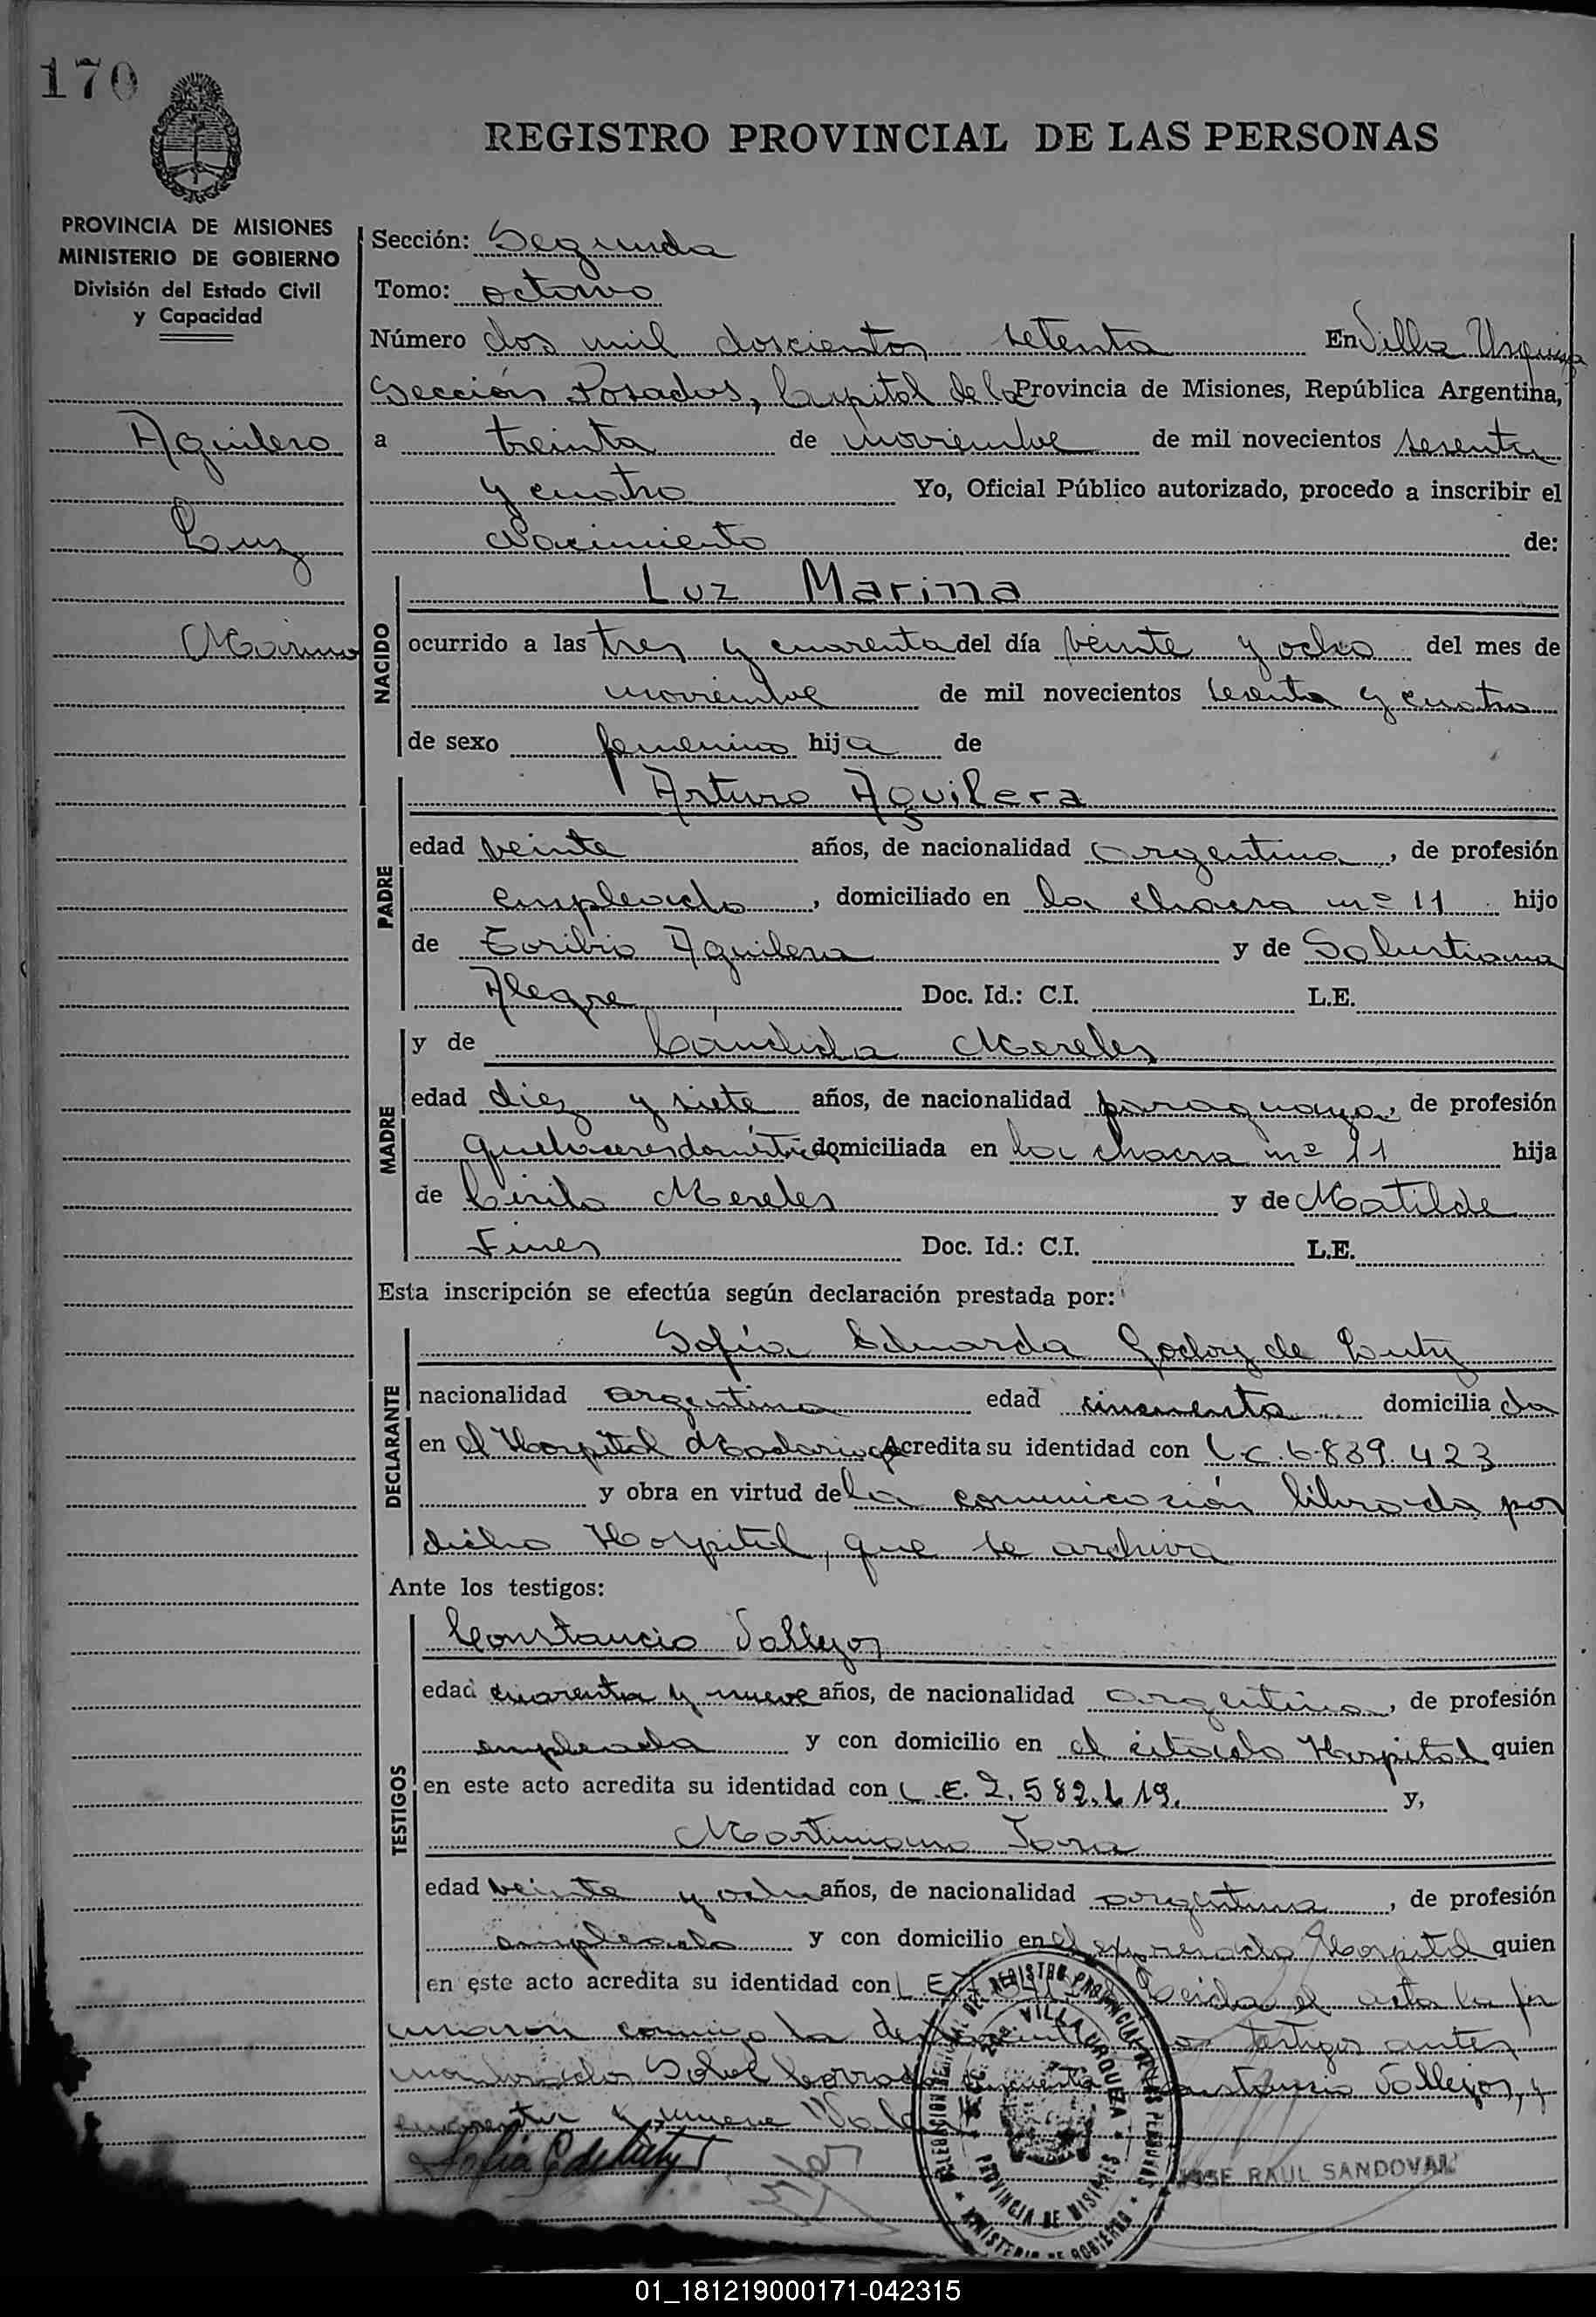 170
REGISTRO PROVINCIAL DE LAS PERSONAS
PROVINCIA DE MISIONES
MINISTERIO DE GOBIERNO
División del Estado Civil
y Capacidad
Aguilera
Luz
Marina
Sección: Segunda
Tomo: octavo
Número dos mil doscientos setenta En Villa Urquiza
Sección Posadas, Capital de la Provincia de Misiones, República Argentina,
a treinta de noviembre de mil novecientos sesenta
y cuatro Yo, Oficial Público autorizado, procedo a inscribir el
Nacimiento de:
NACIDO
Luz Marina
ocurrido a las tres y cuarenta del día veinte y ocho del mes de
noviembre de mil novecientos sesenta y cuatro
de sexo femenino hija de
PADRE
Arturo Aguilera
edad veinte años, de nacionalidad argentina, de profesión
empleado, domiciliado en la chacra nº 11 hijo
de Toribio Aguilera y de Salustiana
Alegre Doc. Id.: C.I. L.E.
MADRE
y de Cándida Mereles
edad diez y siete años, de nacionalidad paraguaya, de profesión
domiciliada en la chacra nº 11 hija
de Cirilo Mereles y de Matilde
Doc. Id.: C.I. L.E.
Esta inscripción se efectúa según declaración prestada por:
DECLARANTE
Sofía Eduarda Godoy de
nacionalidad argentina edad cincuenta domiciliada
en el Hospital Madariaga Acredita su identidad con L.C. 6.839.423
y obra en virtud de la comunicación librada por
dicho Hospital, que se archiva
Ante los testigos:
TESTIGOS
Constancio Vallejos
edad cuarenta y nueve años, de nacionalidad argentina, de profesión
empleado y con domicilio en el citado Hospital quien
en este acto acredita su identidad con L.E. 2.582.119. y,
Martiniano
edad veinte y ocho años, de nacionalidad argentina, de profesión
empleado y con domicilio en el expresado Hospital quien
en este acto acredita su identidad con L.E. Leida el acta la fir
maron conmigo la testigos antes
Sobre borrado cincuenta Constancio Vallejos, y
cuarenta y nueve Vale
DELEGACION REGIONAL DEL REGISTRO PROVINCIAL DE LAS PERSONAS
VILLA URQUIZA
PROVINCIA DE MISIONES
MINISTERIO DE GOBIERNO
JOSE RAUL SANDOVAL
01_181219000171-042315